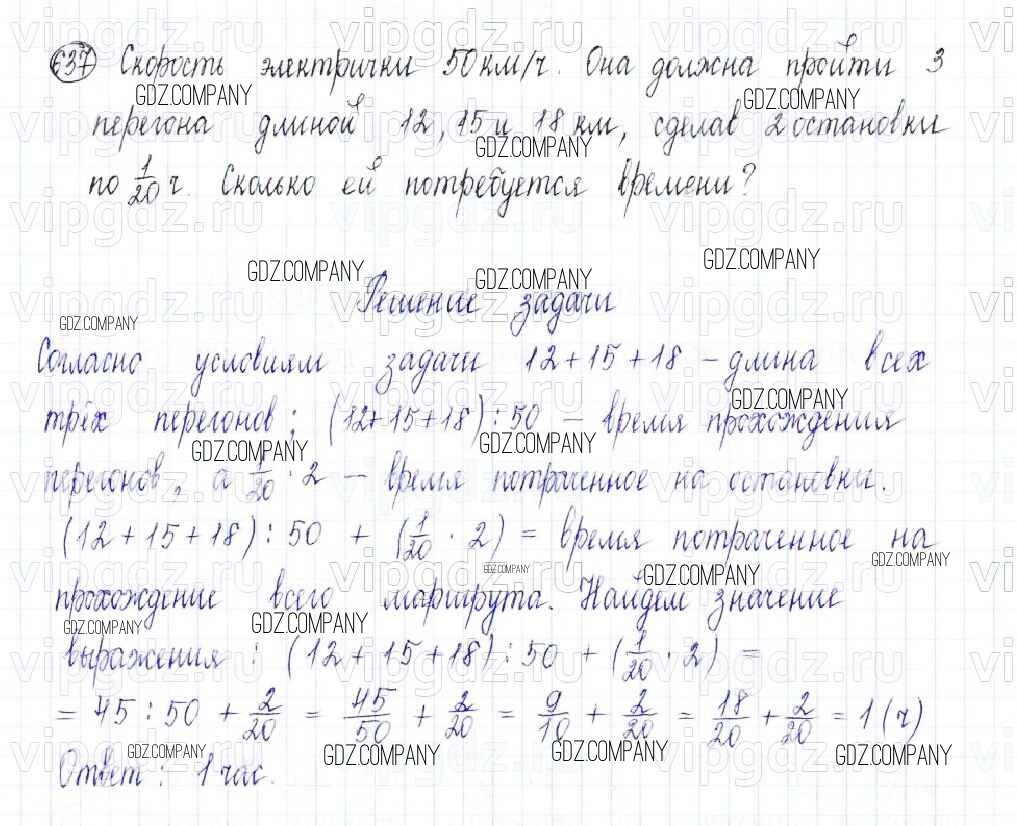 637 Скорость электрички 50 км/ч. Она должна пройти 3
перегона длиной 12, 15 и 18 км, сделав 2 остановки
по 1/20 ч. Сколько ей потребуется времени?
Решение задачи
Согласно условиям задачи 12+15+18 – длина всех
трёх перегонов; (12+15+18):50 – время прохождения
перегонов, а 1/20 · 2 – время потраченное на остановки.
(12+15+18):50 + (1/20 · 2) = время потраченное на
прохождение всего маршрута. Найдем значение
выражения: (12+15+18):50 + (1/20 · 2) =
= 45:50 + 2/20 = 45/50 + 2/20 = 9/10 + 2/20 = 18/20 + 2/20 = 1 (ч)
Ответ: 1 час.
vipgdz.ru
GDZ.COMPANY